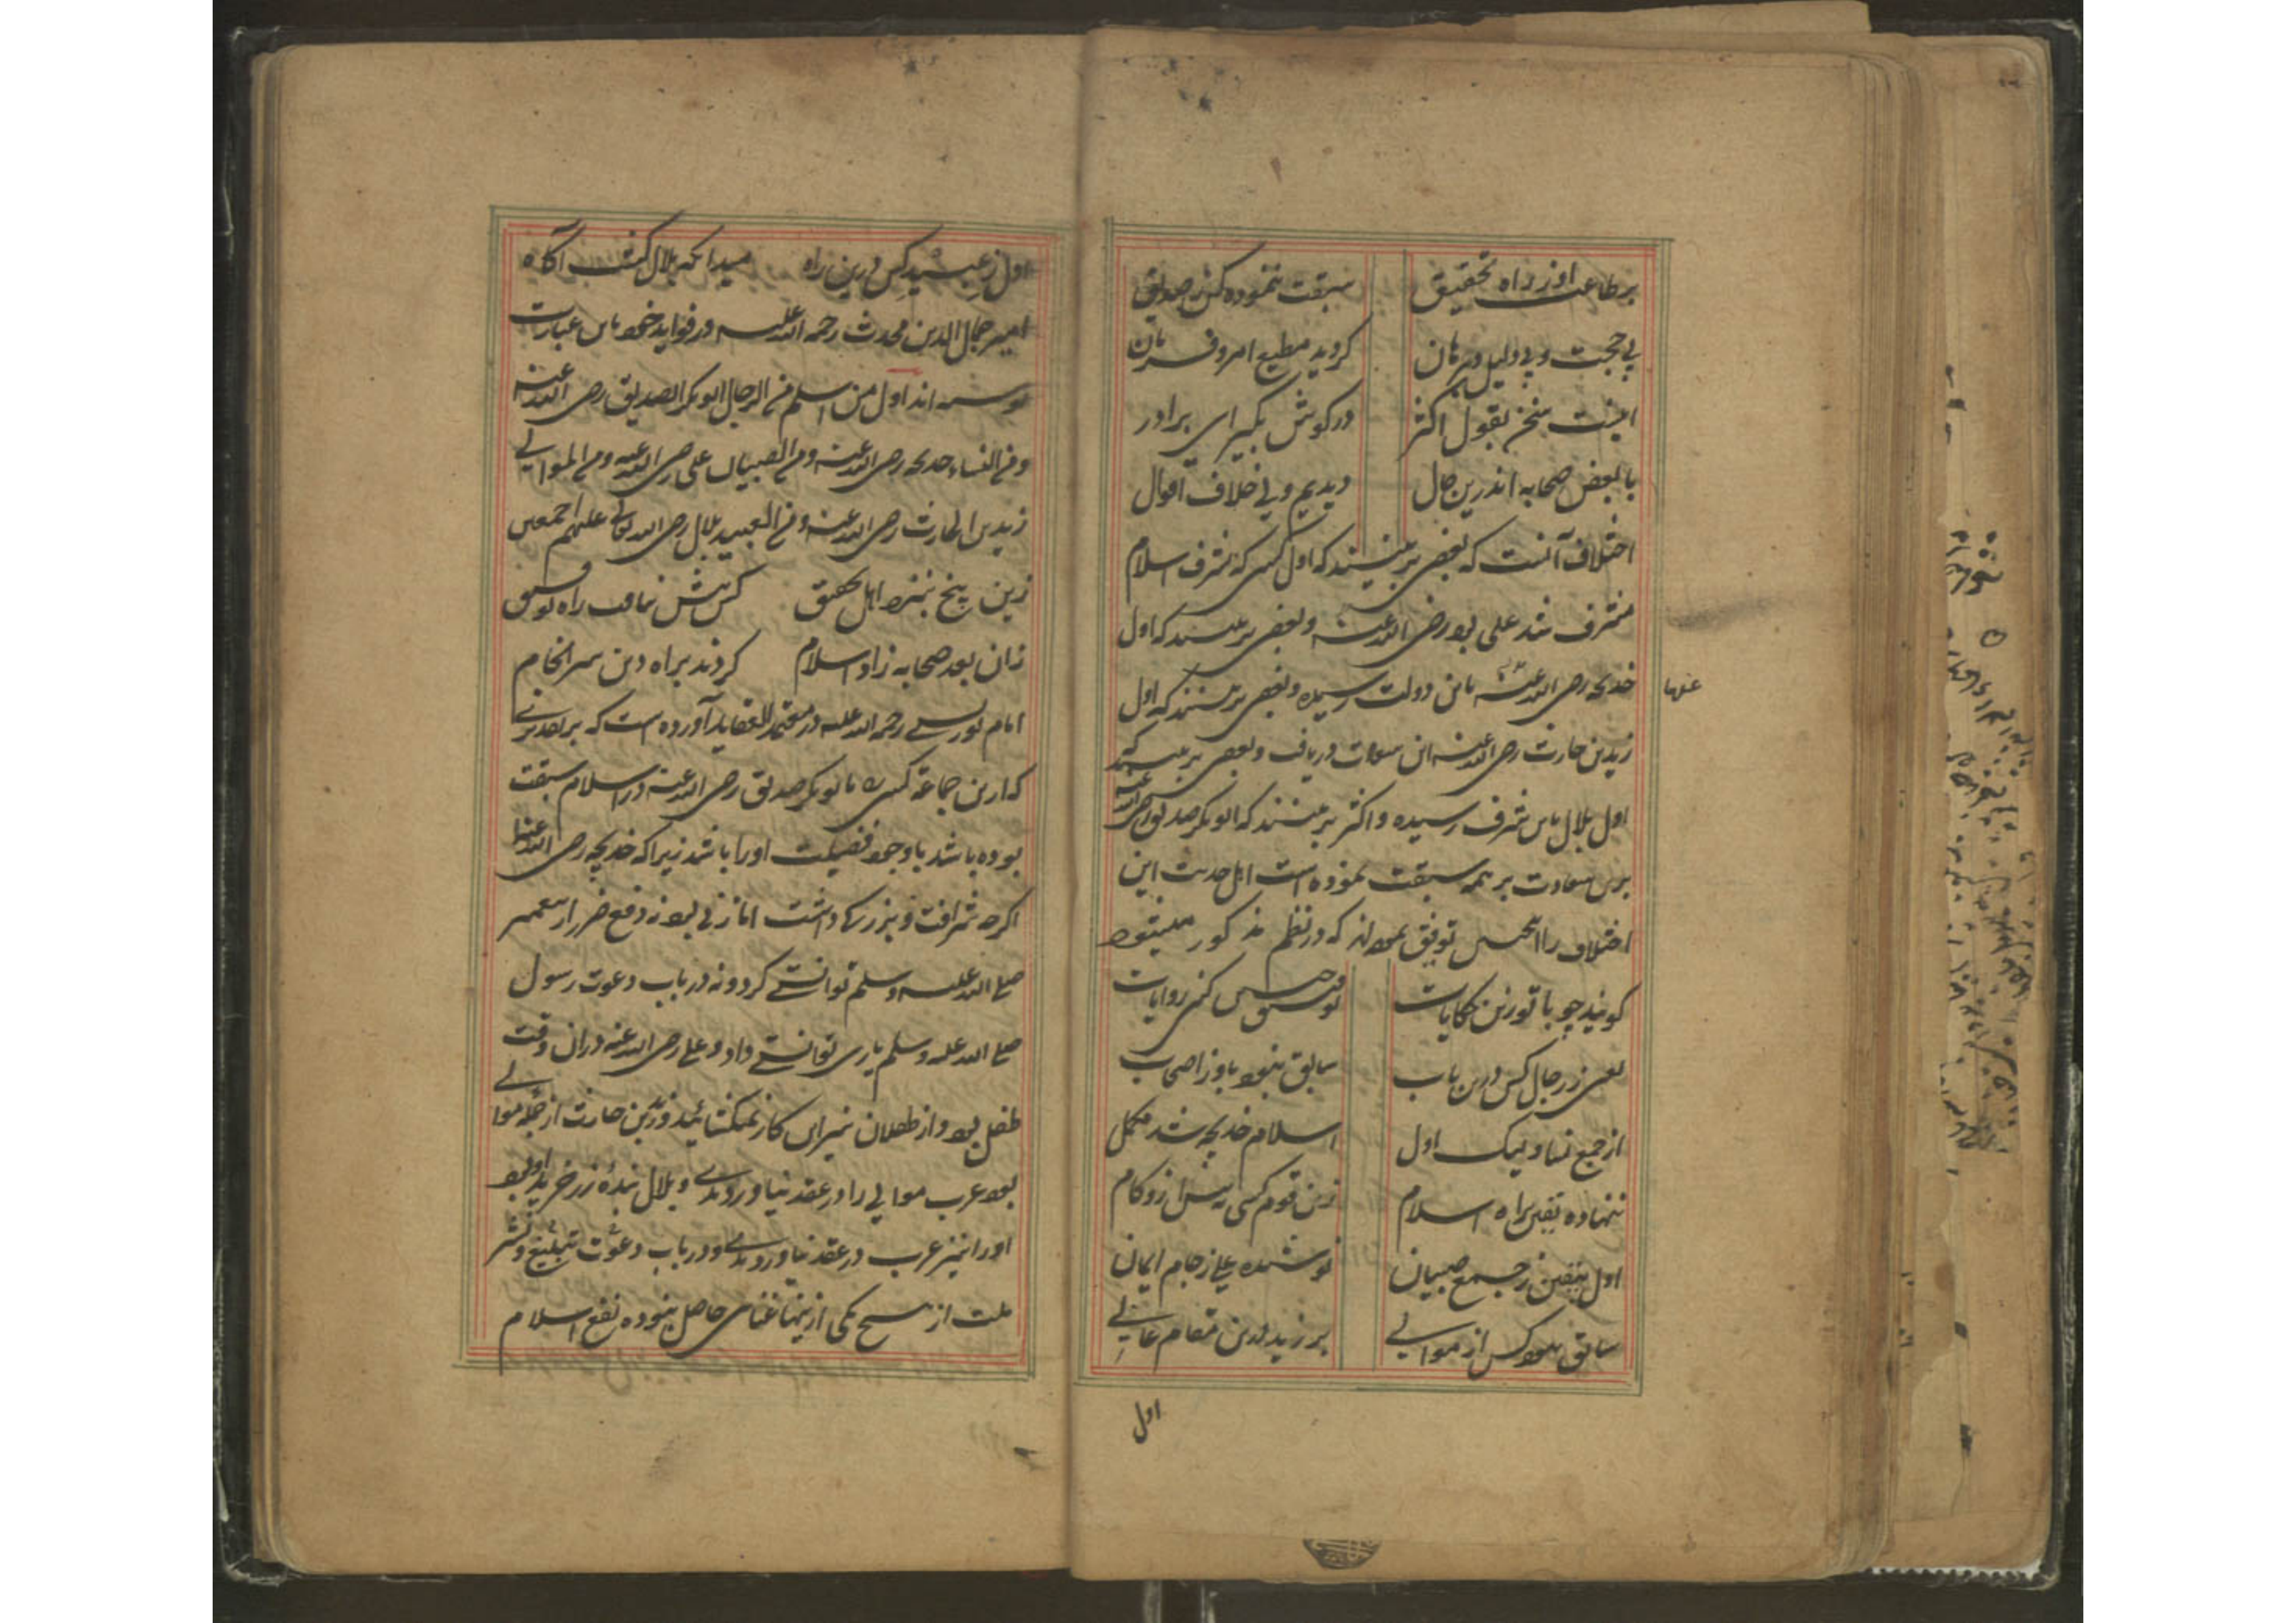 بر طاعت او ز راه تحقیق سبقت ننموده کس ز صدیق
بی حجت و بی دلیل و برهان کردید مطیع امر و فرمان
اینست سخن بقول اکثر در کوش بگیر ای برادر
با بعض صحابه اندرین حال دیدیم ولی خلاف اقوال
اختلاف آنست که بعضی برینند که اول کسی که بشرف اسلام
مشرف شد علی بود رضی الله عنه و بعضی برینند که اول
خدیجه رضی الله عنه باین دولت رسیده و بعضی برینند که اول
عنها
زید بن حارث رضی الله عنه این سعادت دریافت و بعضی برینند که
اول بلال باین شرف رسیده و اکثر برینند که ابوبکر صدیق رضی الله عنه
برین سعادت بر همه سبقت نموده است اهل حدیث این
اختلاف را توفیق نموده اند که در نظم مذکور میشود
کویند چو با تو زین حکایات توفیق کنی روایات
یعنی ز رجال کس درین باب سابق نبود باو ز اصحاب
از جمع نسا ولیک اول اسلام خدیجه شد مکمل
ننهاده یقین براه اسلام زین قوم کسی به پیش ازو کام
اول بیقین ز جمع صبیان نوشیده علی ز جام ایمان
سابق نبود کس از موالی بر زید درین مقام عالی
اول
اول ز عبید کس درین راه میدانکه بلال کشت آکاه
امیر جمال الدین محدث رحمه الله علیه در فواید خود باین عبارت
نوشته اند اول من اسلم فی الرجال ابوبکر الصدیق رضی الله عنه
و فی النساء خدیجه رضی الله عنه و فی الصبیان علی رضی الله عنه و فی الموالی
زید بن الحارث رضی الله عنه و فی العبید بلال رضی الله تعالی علیهم اجمعین
زین پنج بنزد اهل تحقیق کس پیش نیافت راه توفیق
زان بعد صحابه زاد اسلام کردند براه دین سرانجام
امام رحمه الله علیه در معتمد العقاید آورده است که بر تقدیری
که ازین جماعة کسی با ابوبکر صدیق رضی الله عنه در اسلام سبقت
بوده باشد با وجود فضیلت او را باشد زیرا که خدیجه رضی الله عنها
اکرچه شرافت و بزرکی داشت اما زنی بود نه دفع ضرر از پیغمبر
صلی الله علیه وسلم توانستی کرد و نه در باب دعوت رسول
صلی الله علیه وسلم یاری توانستی داد و علی رضی الله عنه دران وقت
طفل بود و از طفلان نیز این کار نمیکشاید و زید بن حارث از جمله موالی
بود عرب موالی را در عقد نیاوردندی و بلال بنده زر خرید او بود
او را نیز عرب در عقد نیاوردندی و در باب دعوت تبلیغ و نشر
ملت از هیچ یکی ازینها غنای حاصل نبوده نفع اسلام